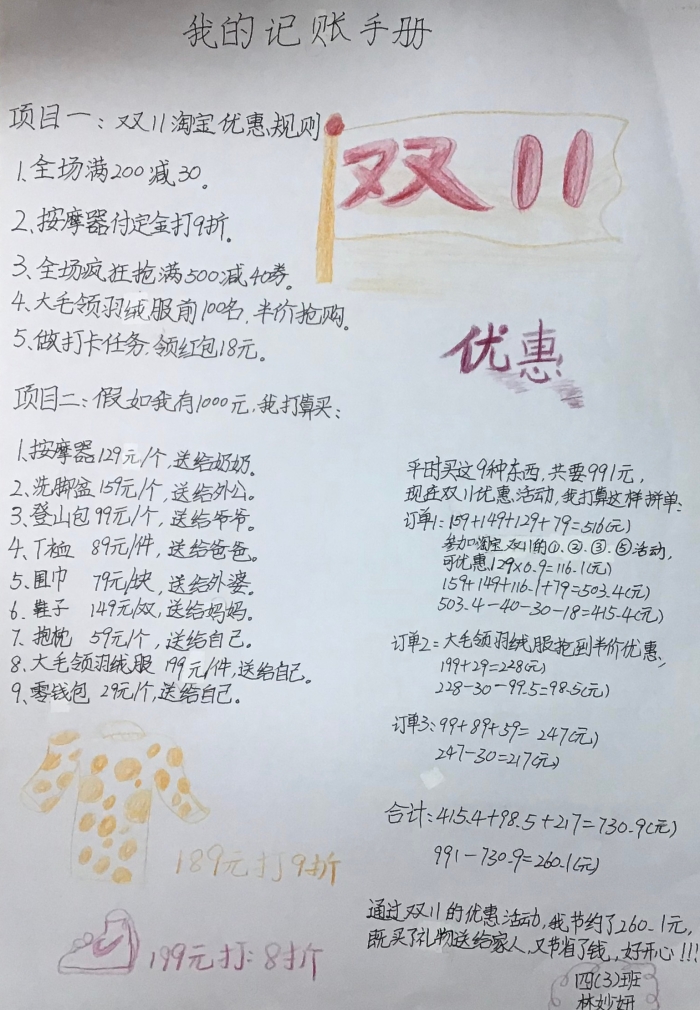 我的记账手册
项目一：双11淘宝优惠规则
双11
1、全场满200减30。
2、按摩器付定金打9折。
3、全场疯狂抢满500减40券。
4、大毛领羽绒服前100名，半价抢购。
5、做打卡任务，领红包18元。
优惠
项目二：假如我有1000元，我打算买：
1、按摩器129元/个，送给奶奶。
2、洗脚盆159元/个，送给外公。
3、登山包99元/个，送给爷爷。
4、T恤 89元/件，送给爸爸。
5、围巾 79元/块，送给外婆。
6、鞋子 149元/双，送给妈妈。
7、抱枕 59元/个，送给自己。
8、大毛领羽绒服 199元/件，送给自己。
9、零钱包 29元/个，送给自己。
平时买这9种东西，共要991元，
现在双11优惠活动，我打算这样拼单：
订单1：159+149+129+79=516(元)
参加淘宝双11的①、②、③、⑤活动，
可优惠129×0.9=116.1(元)
159+149+116.1+79=503.4(元)
503.4-40-30-18=415.4(元)
订单2：大毛领羽绒服抢到半价优惠，
199+29=228(元)
228-30-99.5=98.5(元)
订单3：99+89+59=247(元)
247-30=217(元)
合计：415.4+98.5+217=730.9(元)
991-730.9=260.1(元)
189元打9折
199元打：8折
通过双11的优惠活动，我节约了260.1元，
既买了礼物送给家人，又节省了钱，好开心!!!
四(3)班
林妙妍